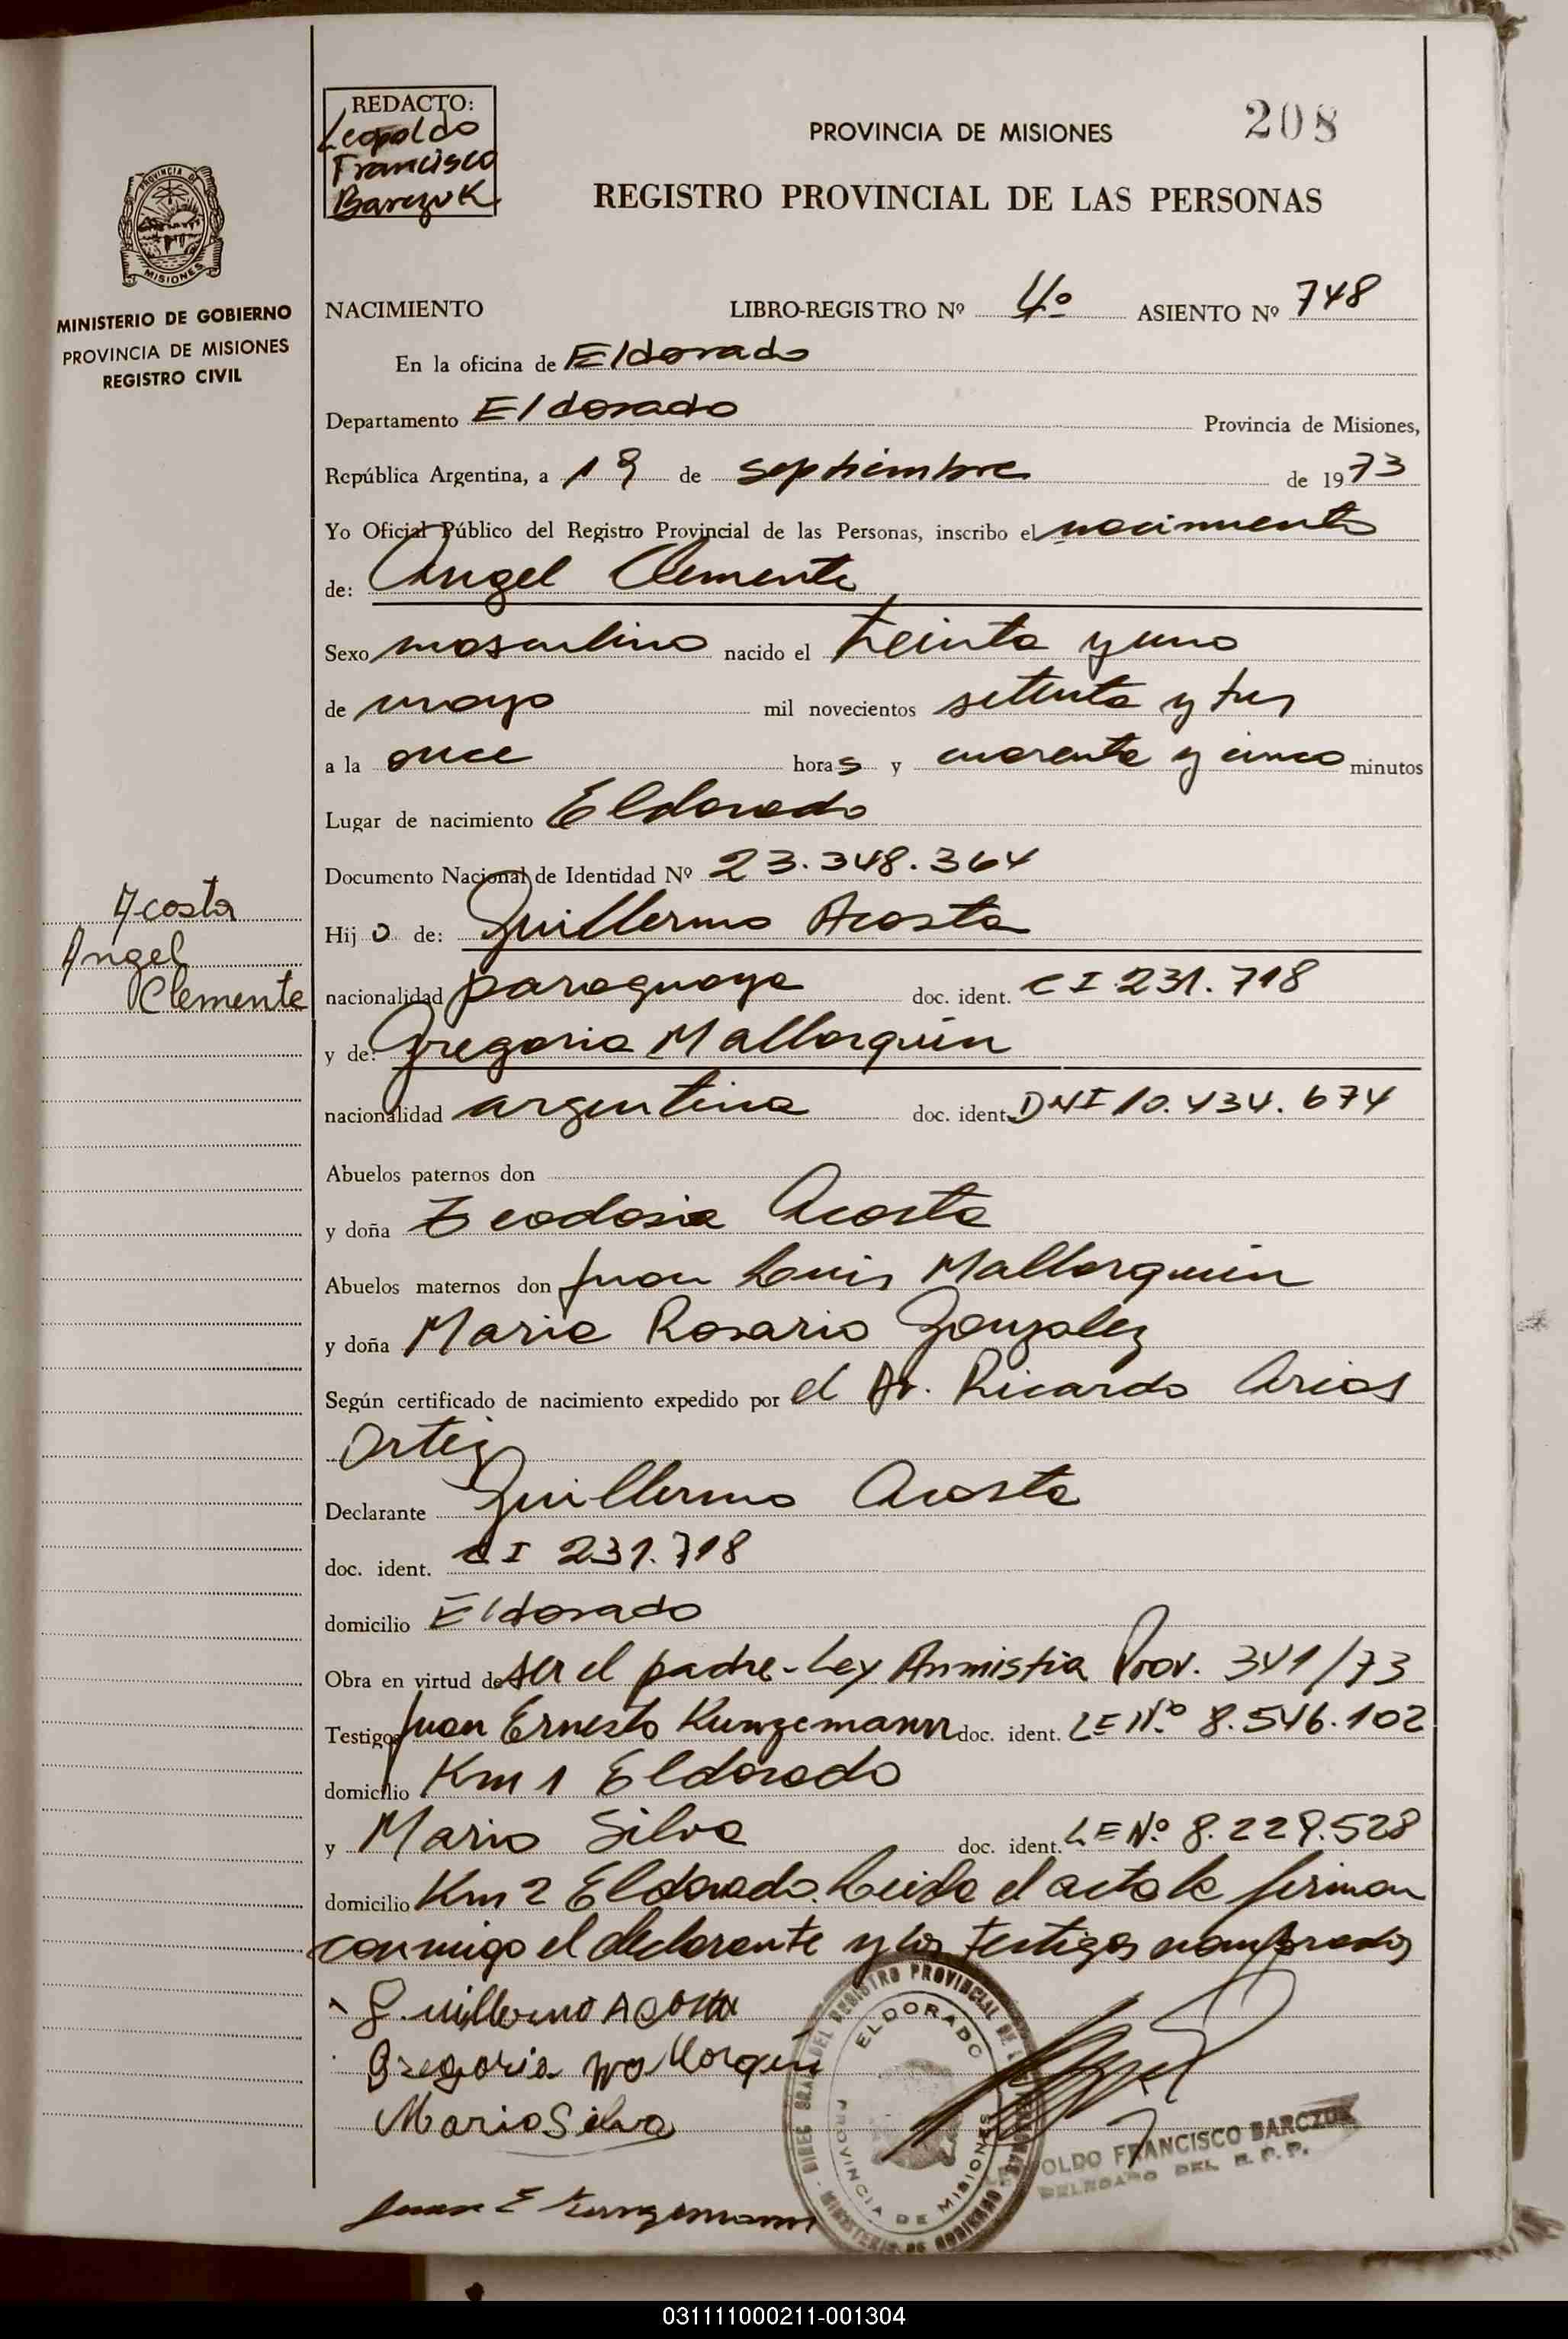 REDACTO:
Leopoldo
Francisco
Barczuk
208
PROVINCIA DE MISIONES
REGISTRO PROVINCIAL DE LAS PERSONAS
PROVINCIA DE
MISIONES
MINISTERIO DE GOBIERNO
PROVINCIA DE MISIONES
REGISTRO CIVIL
NACIMIENTO LIBRO-REGISTRO Nº 4º ASIENTO Nº 748
En la oficina de Eldorado
Departamento Eldorado Provincia de Misiones,
República Argentina, a 19 de septiembre de 1973
Yo Oficial Público del Registro Provincial de las Personas, inscribo el nacimiento
de: Angel Clemente
Sexo masculino nacido el treinta y uno
de mayo mil novecientos setenta y tres
a la once horas y cuarenta y cinco minutos
Lugar de nacimiento Eldorado
Documento Nacional de Identidad Nº 23.348.364
Acosta
Angel
Clemente
Hijo de: Guillermo Acosta
nacionalidad paraguaya doc. ident. CI 231.718
y de: Gregoria Mallorquin
nacionalidad argentina doc. ident. DNI 10.434.674
Abuelos paternos don
y doña Teodosia Acosta
Abuelos maternos don Juan Luis Mallorquin
y doña Maria Rosario Gonzalez
Según certificado de nacimiento expedido por el Dr. Ricardo Arias
Ortiz
Declarante Guillermo Acosta
doc. ident. CI 231.718
domicilio Eldorado
Obra en virtud de ser el padre - Ley Anmistia Prov. 341/73
Testigos Juan Ernesto Kunzemann doc. ident. LE Nº 8.546.102
domicilio Km 1 Eldorado
y Mario Silva doc. ident. LE Nº 8.229.528
domicilio Km 2 Eldorado. Leida el acta la firman
conmigo el declarante y los testigos nombrados
Guillermo Acosta
Gregoria Mallorquin
Mario Silva
Juan E Kunzemann
ELDORADO
PROVINCIA DE MISIONES
OLDO FRANCISCO BARCZUK
DELEGADO DEL R. P. P.
031111000211-001304